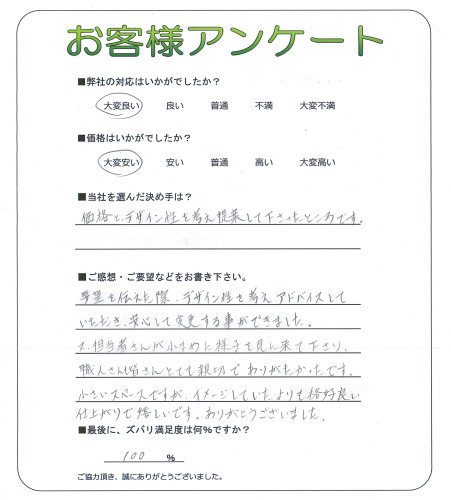 お客様アンケート
■弊社の対応はいかがでしたか？
大変良い 良い 普通 不満 大変不満
■価格はいかがでしたか？
大変安い 安い 普通 高い 大変高い
■当社を選んだ決め手は？
価格と、デザイン性も考え提案して下さったところです。
■ご感想・ご要望などをお書き下さい。
要望を伝えた際、デザイン性も考えアドバイスして
いただき、安心して変更する事ができました。
又、担当者さんが小まめに様子を見に来て下さり、
職人さん皆さんとても親切でありがたかったです。
小さいスペースですが、イメージしていたよりも格好良い
仕上がりで嬉しいです。ありがとうございました。
■最後に、ズバリ満足度は何％ですか？
100 ％
ご協力頂き、誠にありがとうございました。